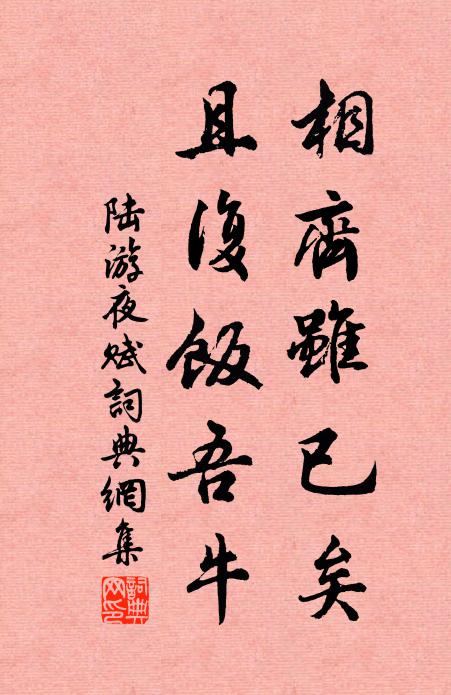 相齊雖已矣
且復飯吾牛
陆游夜赋詞典網集
詞典网印